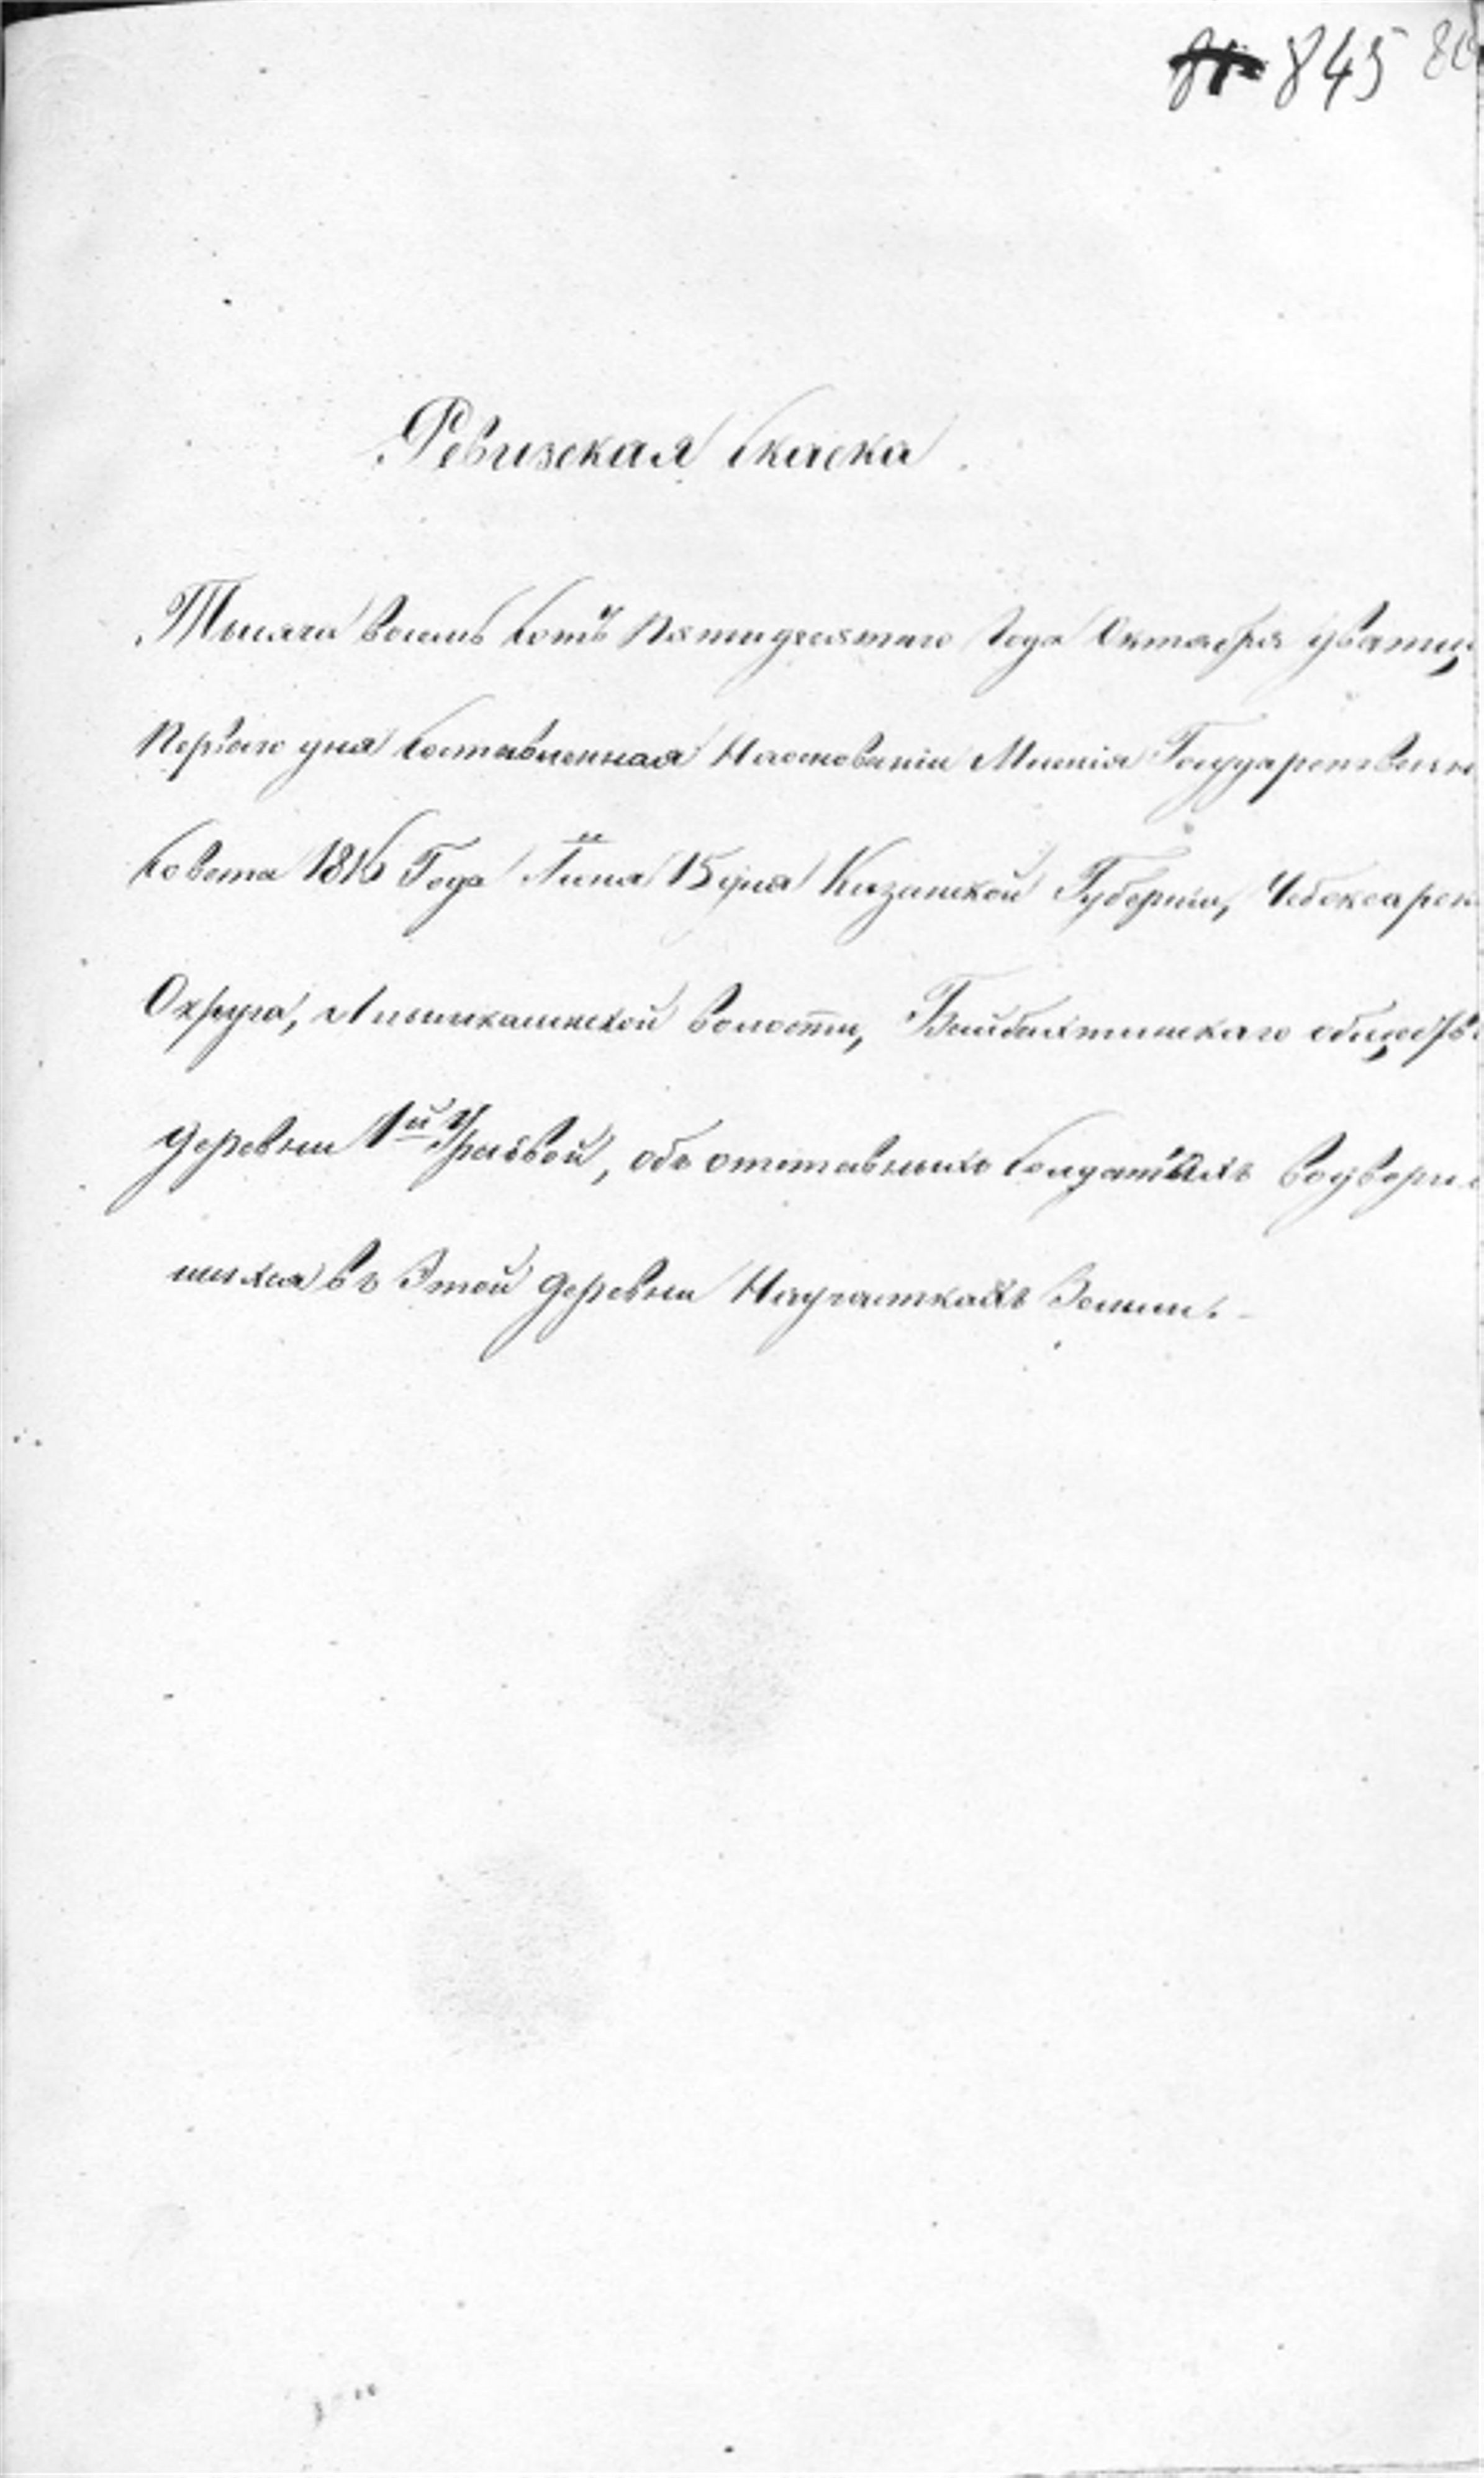 845 80
Ревизская скаска
Тысяча восемь сотъ пятидесятаго года Октября дватц
Перваго дня составленная Наосновании Мнения Государственна
совета 1816 Года Юня 15 дня Казанской Губернии, Чебоксарск
Округа, Алымкасинской волости, Байбахтинскаго обществ
деревни 1й Ураевой, объ отставныхъ солдатахъ водворив
шихся въ Этой деревни Научасткахъ Земли.